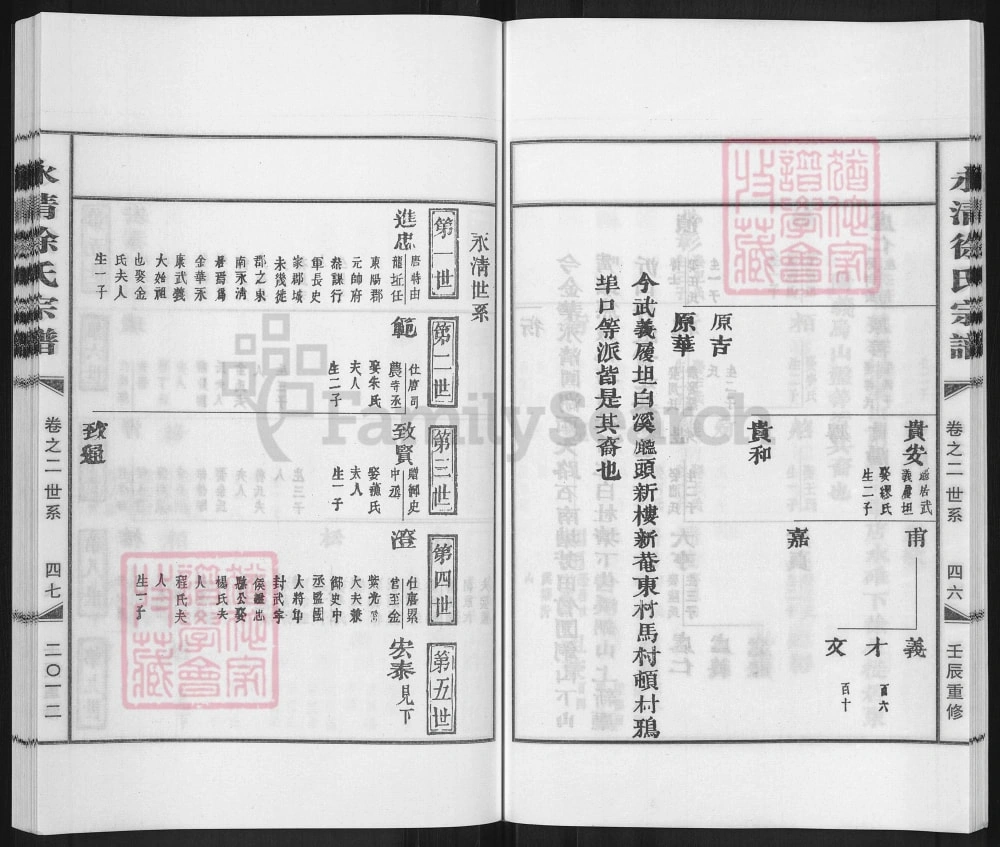 永清徐氏宗譜
卷之二 世系
四六
壬辰重修
貴安
遷居武
義履坦
娶繆氏
生二子
甫
義
才
百六
文
百十
嘉
貴和
原吉
原華
今武義履坦白溪
頭新樓新菴東村馬村頓村鴉
埠口等派皆是其裔也
永清世系
第一世
第二世
第三世
第四世
第五世
進忠
唐時由
龍祉任
東陽郡
元帥府
叅謀行
軍長史
家郡城
未幾徙
郡之東
南永清
者焉爲
金華永
康武義
大始祖
也娶金
氏夫人
生一子
範
仕唐司
農寺丞
娶朱氏
夫人
生二子
致賢
贈御史
中丞
夫人
生一子
澄
仕唐累
官至金
紫光祿
大夫兼
御史中
丞監國
大將軍
封武寧
侯
縣公娶
楊氏夫
人
程氏夫
人
生一子
宏泰
見下
致通
永清徐氏宗譜
卷之二 世系
四七
二〇一二
FamilySearch